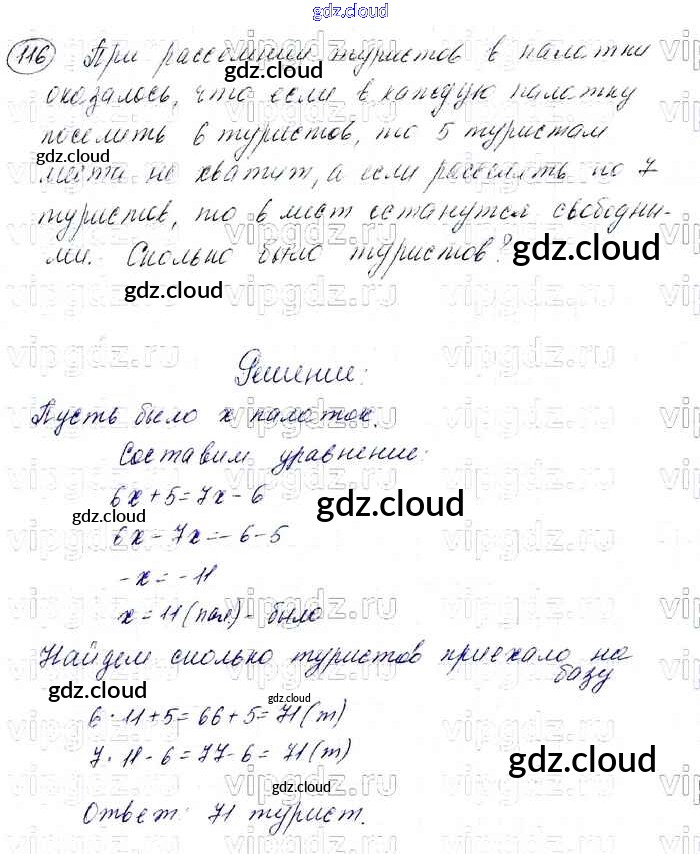 gdz.cloud
116 При расселении туристов в палатки
gdz.cloud
оказалось, что если в каждую палатку
поселить 6 туристов, то 5 туристам
gdz.cloud
места не хватит, а если расселять по 7
туристов, то 6 мест останутся свободны-
ми. Сколько было туристов?
gdz.cloud
gdz.cloud
vipgdz.ru
Решение:
Пусть было x палаток.
Составим уравнение:
6x+5=7x-6
gdz.cloud
gdz.cloud
6x-7x=-6-5
-x=-11
x=11(пал)-было
Найдем сколько туристов приехало на
базу
gdz.cloud
gdz.cloud
6·11+5=66+5=71(т)
7·11-6=77-6=71(т)
gdz.cloud
gdz.cloud
Ответ: 71 турист.